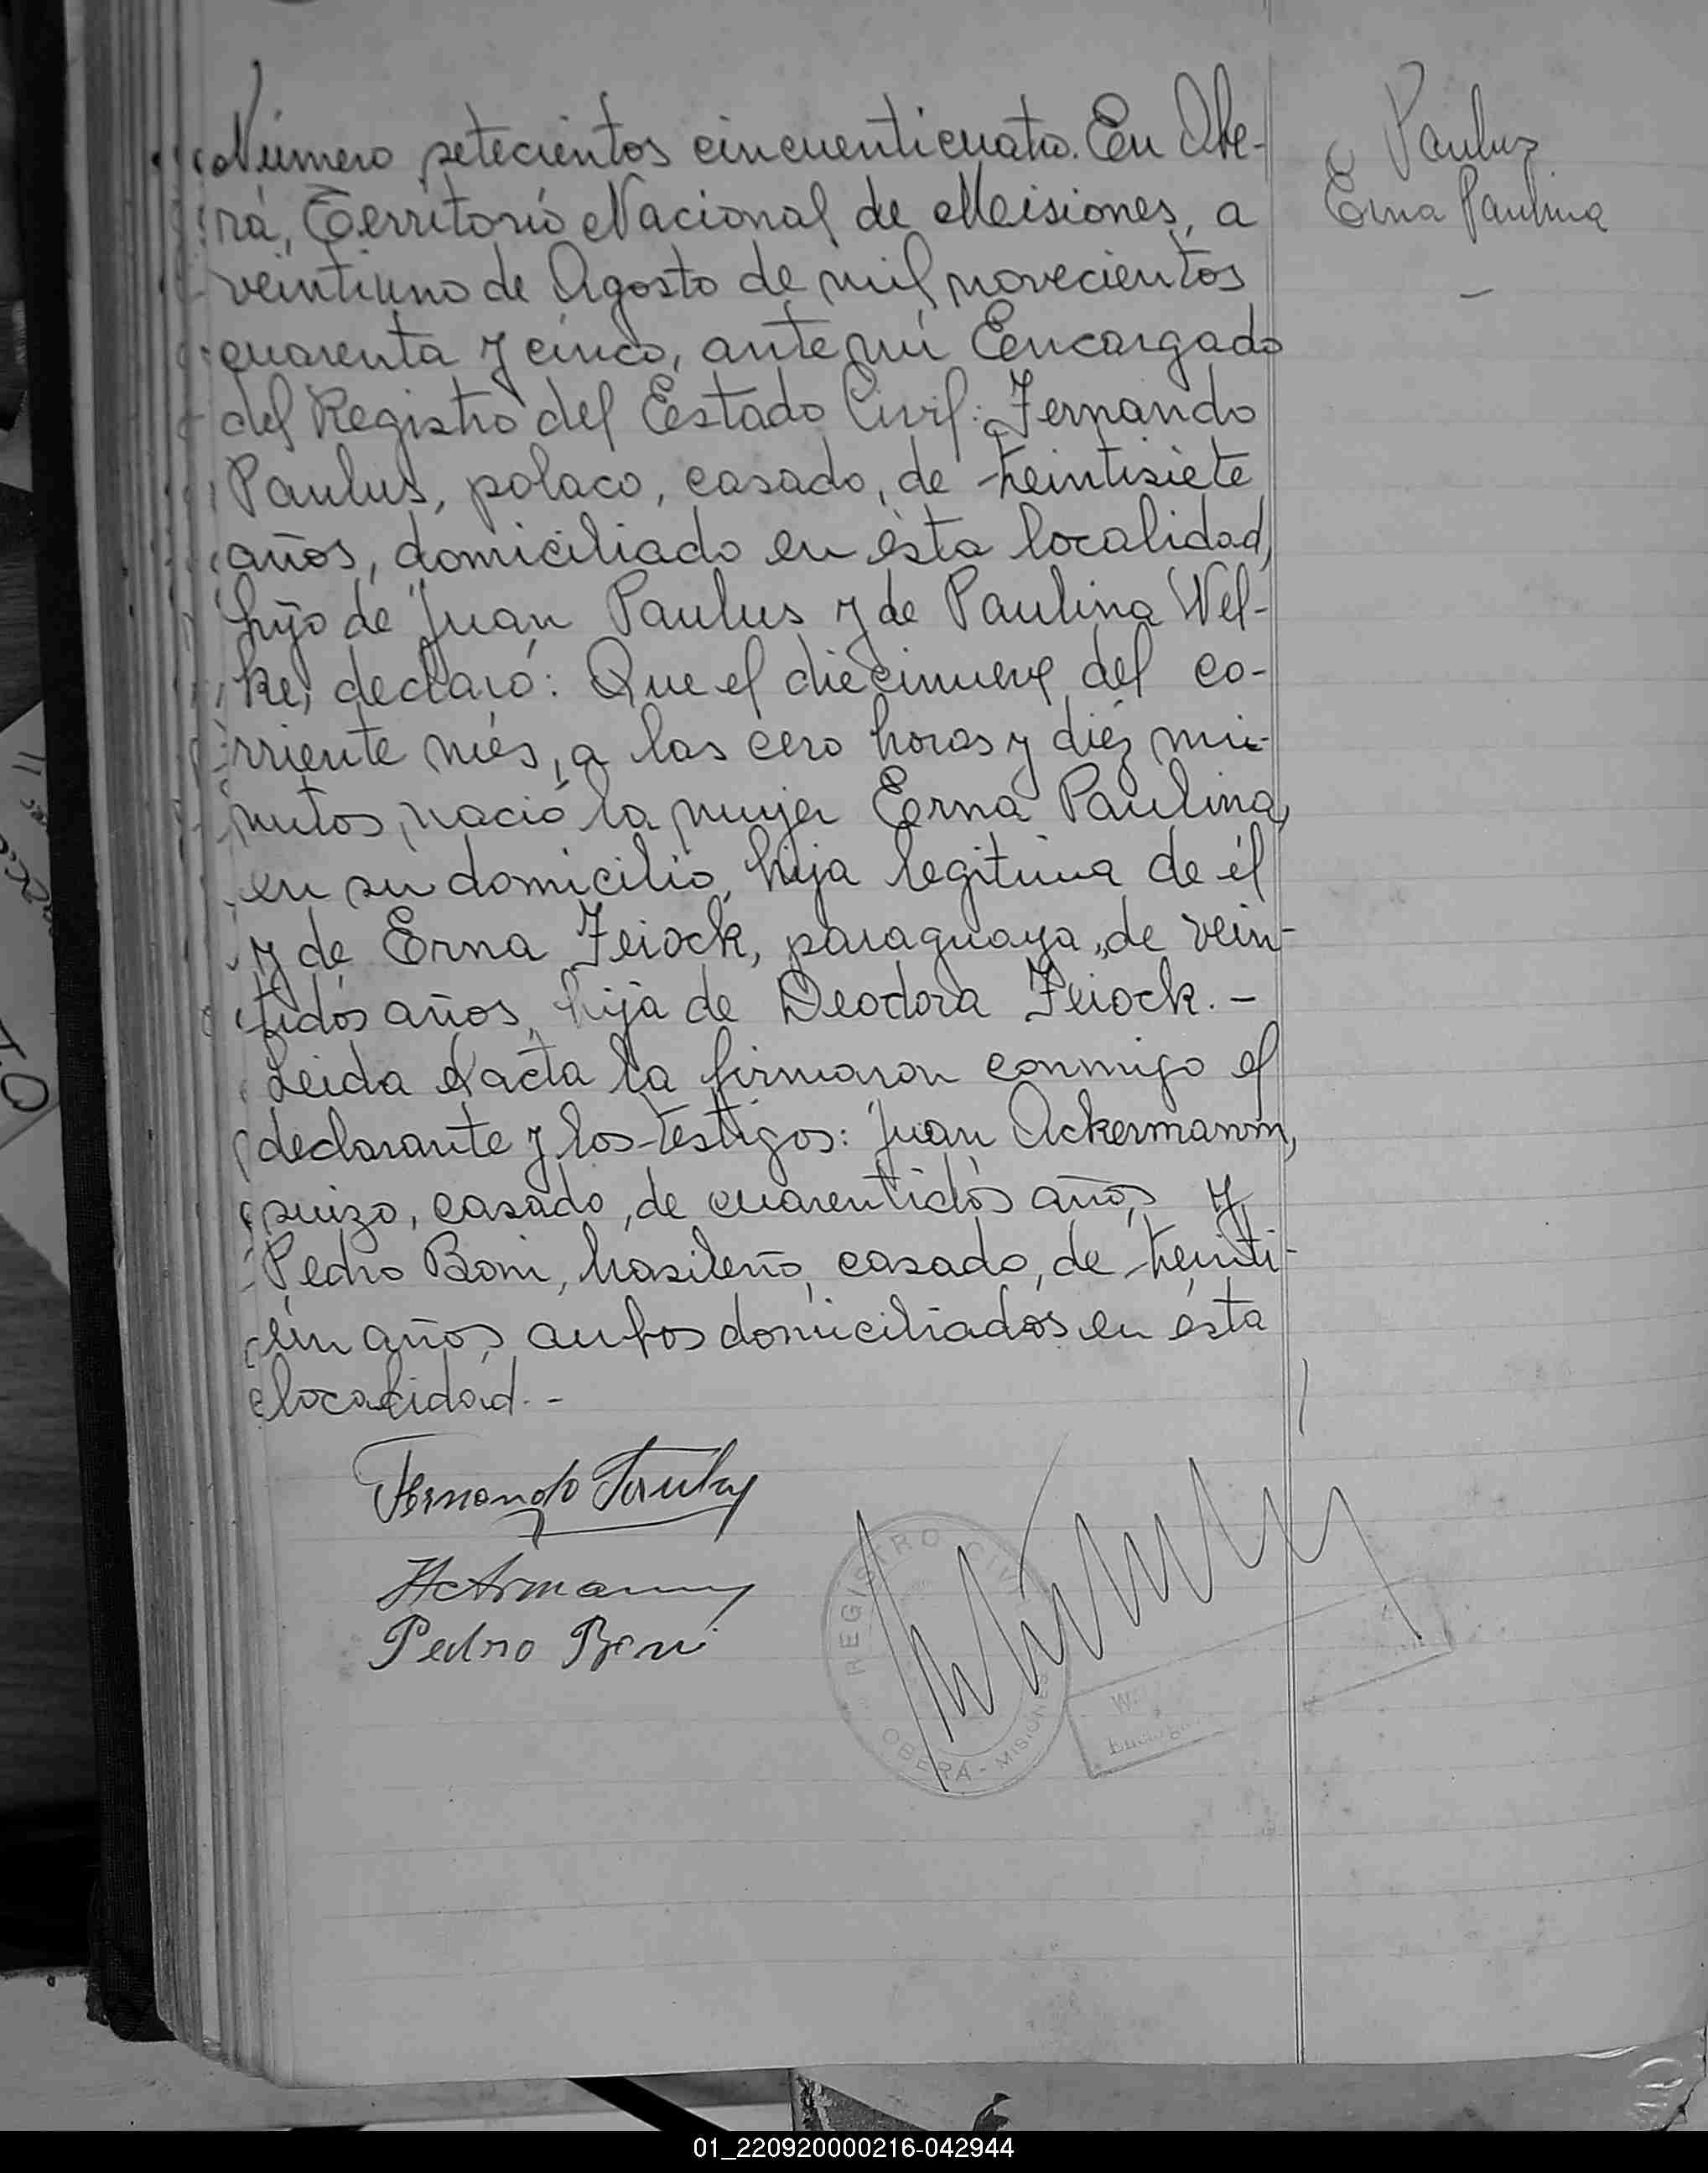 Número setecientos cincuenticuatro. En Obe-
rá, Territorio Nacional de Misiones, a
veintiuno de Agosto de mil novecientos
cuarenta y cinco, ante mí Encargado
del Registro del Estado Civil: Fernando
Paulus, polaco, casado, de treintisiete
años, domiciliado en ésta localidad,
hijo de Juan Paulus y de Paulina Wel-
ke, declaró: Que el diecinueve del co-
rriente més, a las cero horas y diéz mi-
nutos, nació la mujer Erna Paulina,
en su domicilio, hija legitima de él
y de Erna Feiock, paraguaya, de vein-
tidós años, hija de Deodora Feiock. -
Leida el acta la firmaron conmigo el
declarante y los testigos: Juan Ackermann,
suizo, casado, de cuarentidós años, y
Pedro Boni, brasileño, casado, de treinti-
ún años, ambos domiciliados en ésta
localidad. -
Paulus
Erna Paulina
-
Fernando Paulus
Pedro Boni
REGISTRO CIVIL
OBERÁ - MISIONES
01_220920000216-042944